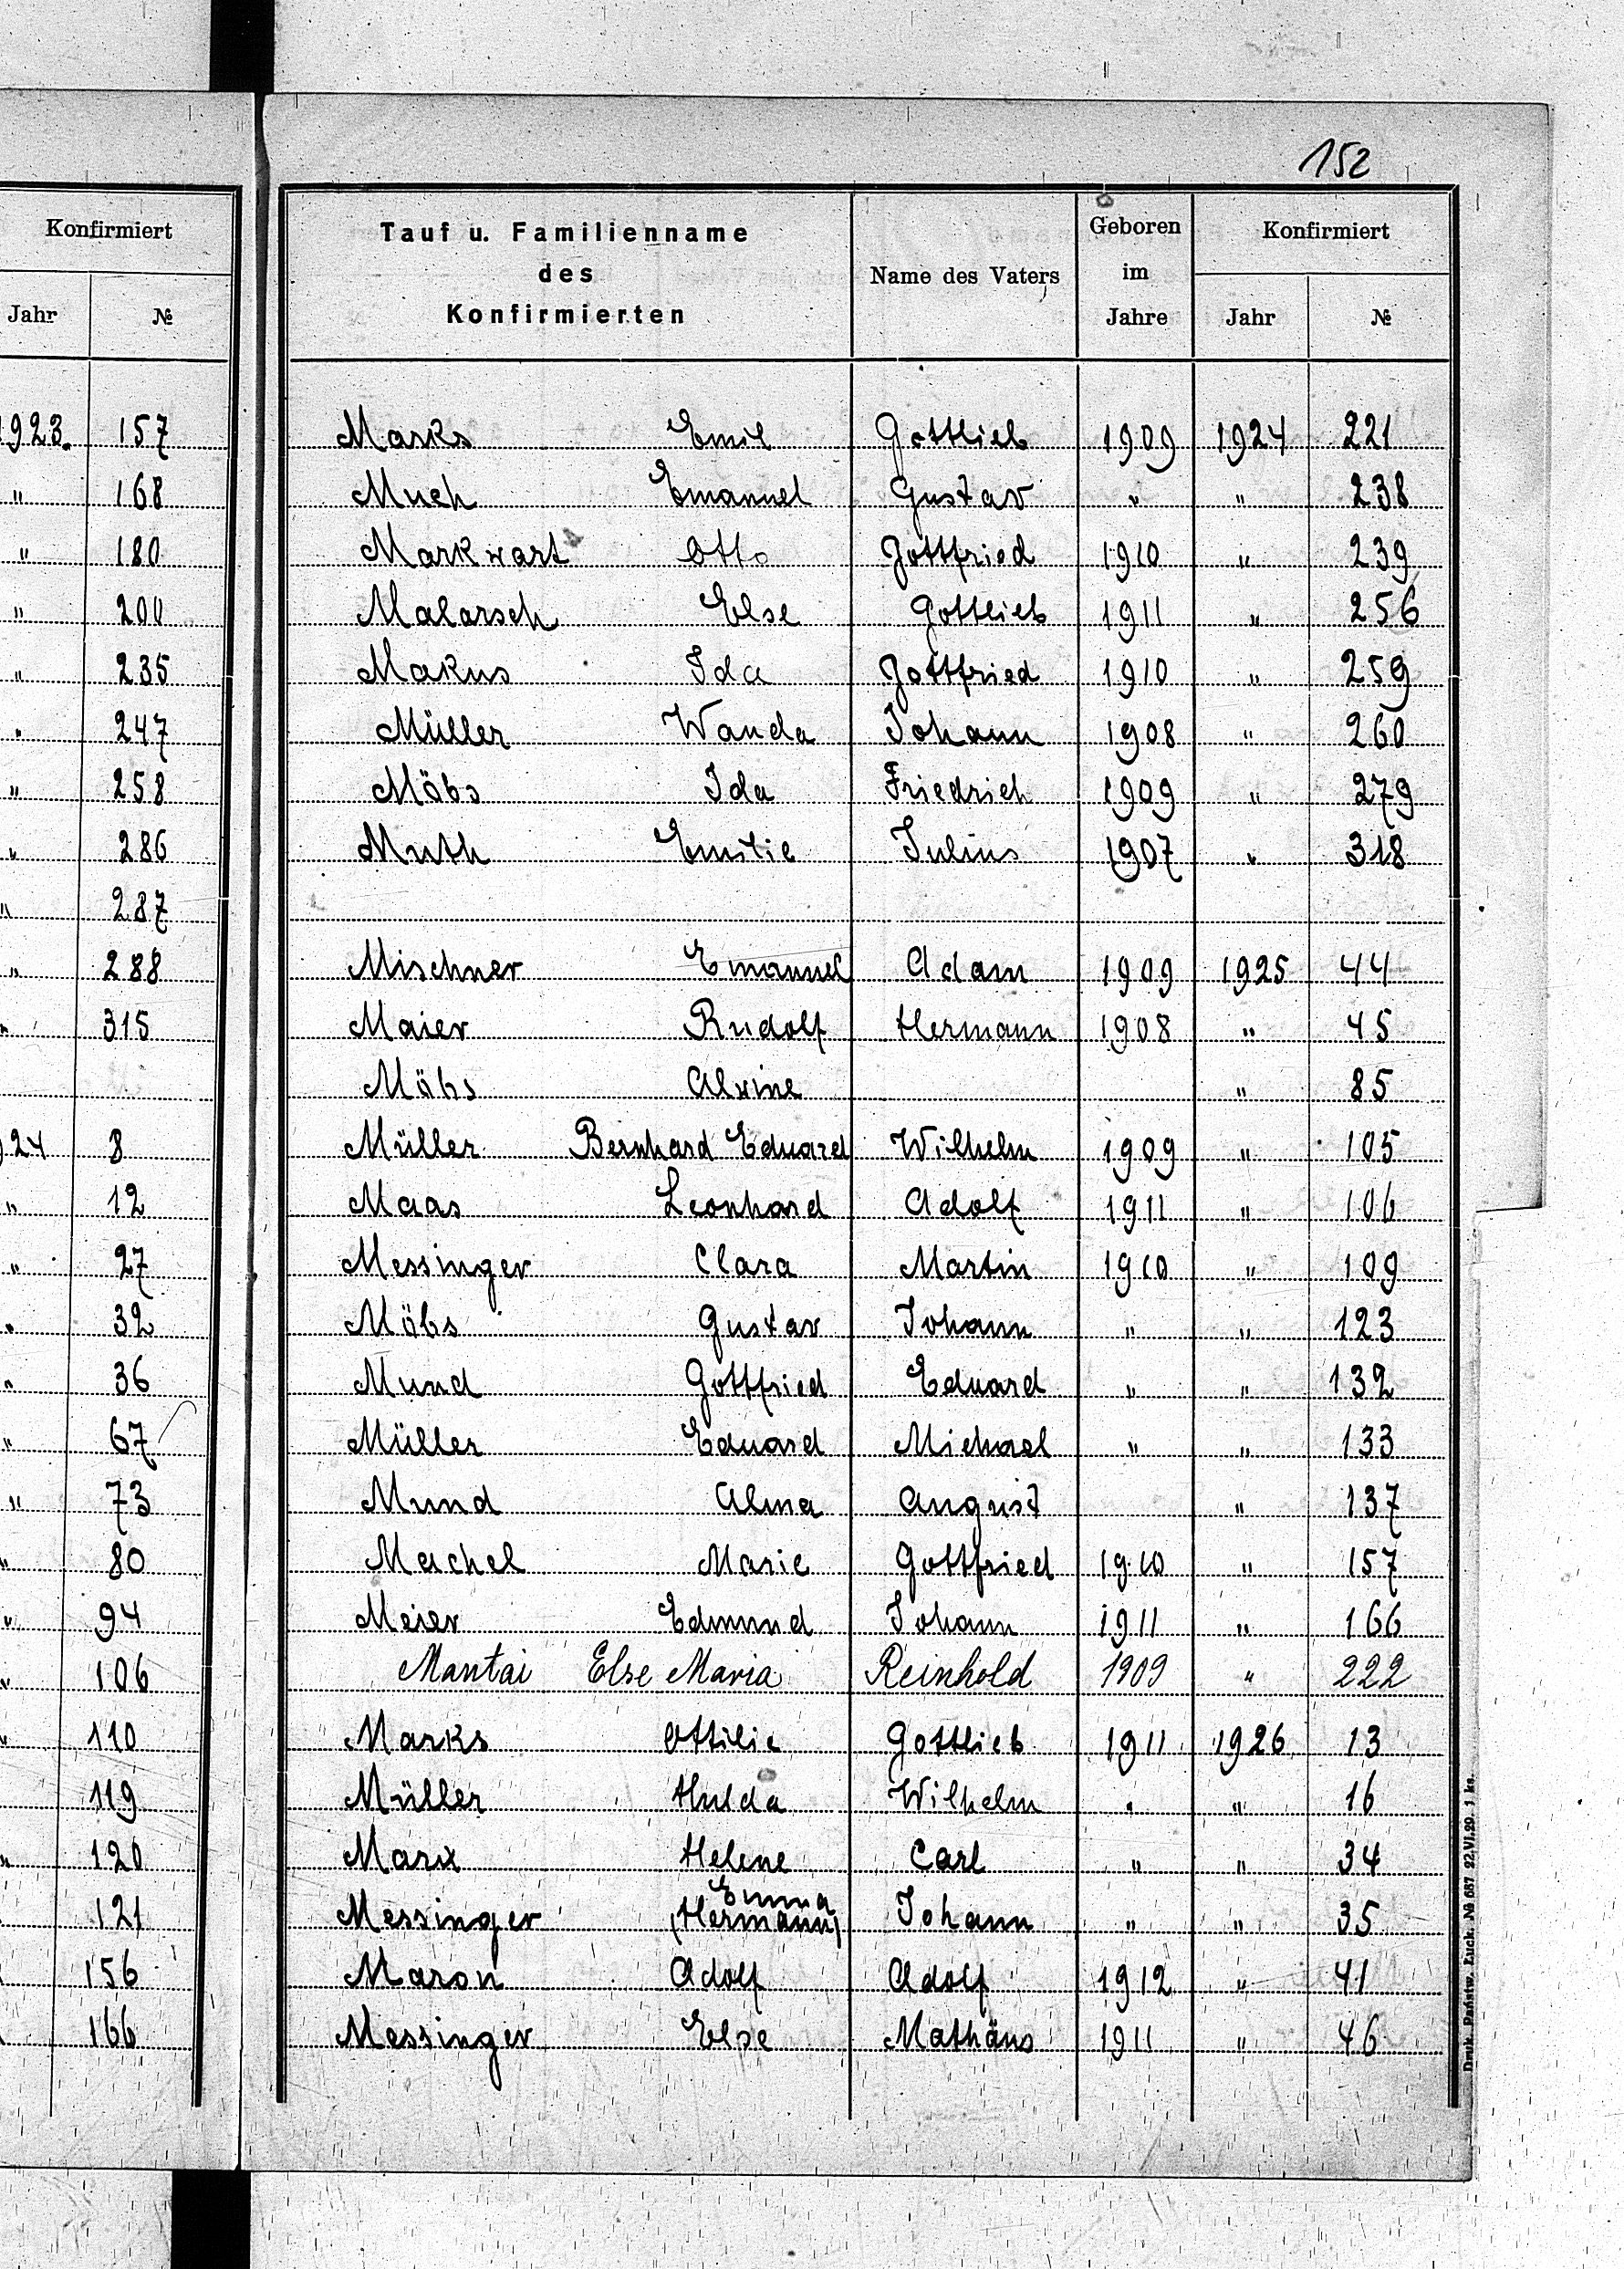 152
Konfirmiert
Jahr №
1923. 157
" 168
" 180
" 200
" 235
" 247
" 258
" 286
" 287
" 288
" 315
24 8
" 12
" 27
" 32
" 36
" 67
" 73
" 80
" 94
" 106
" 110
119
" 120
121
156
166
Tauf u. Familienname des Konfirmierten Name des Vaters Geboren im Jahre Konfirmiert
Jahr №
Marks Emil Gottlieb 1909 1924 221
Much Emanuel Gustav " " 238
Markwart Otto Gottfried 1910 " 239
Malarsch Else Gottlieb 1911 " 256
Makus Ida Gottfried 1910 " 259
Müller Wanda Johann 1908 " 260
Möbs Ida Friedrich 1909 " 279
Muth Emilie Julius 1907 " 318
Mischner Emanuel Adam 1909 1925 44
Maier Rudolf Hermann 1908 " 45
Möbs Alwine " 85
Müller Bernhard Eduard Wilhelm 1909 " 105
Maas Leonhard Adolf 1911 " 106
Messinger Clara Martin 1910 " 109
Möbs Gustav Johann " " 123
Mund Gottfried Eduard " " 132
Müller Eduard Michael " " 133
Mund Alma August " 137
Machel Marie Gottfried 1910 " 157
Meier Edmund Johann 1911 " 166
Mantai Else Maria Reinhold 1909 " 222
Marks Ottilie Gottlieb 1911 1926 13
Müller Hulda Wilhelm " " 16
Marx Helene Carl " " 34
Emma
Messinger (Hermann) Johann " " 35
Maron Adolf Adolf 1912 " 41
Messinger Else Mathäus 1911 " 46
Druk. Państw. Łuck. № 687 22.VI.29. 1 ks.